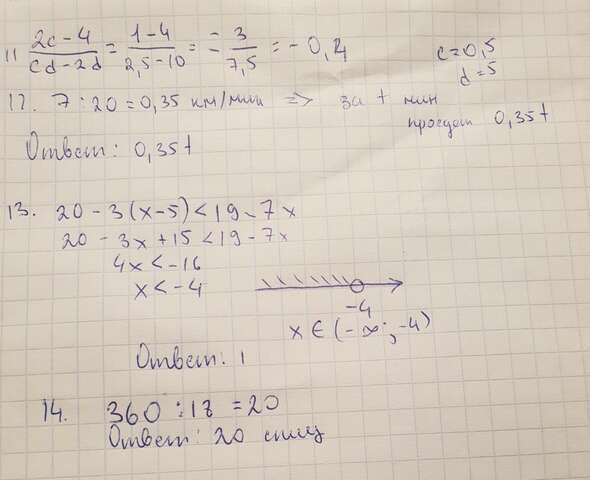 11 (2c-4)/(cd-2d) = (1-4)/(2,5-10) = - -3/7,5 = - 0,4
c=0,5
d=5
12. 7:20=0,35 км/мин => за t мин
проедет 0,35t
Ответ: 0,35t
13. 20-3(x-5)<19-7x
20-3x+15<19-7x
4x<-16
x<-4
-4
x∈(-∞;-4)
Ответ: 1
14. 360:18=20
Ответ: 20 спиц